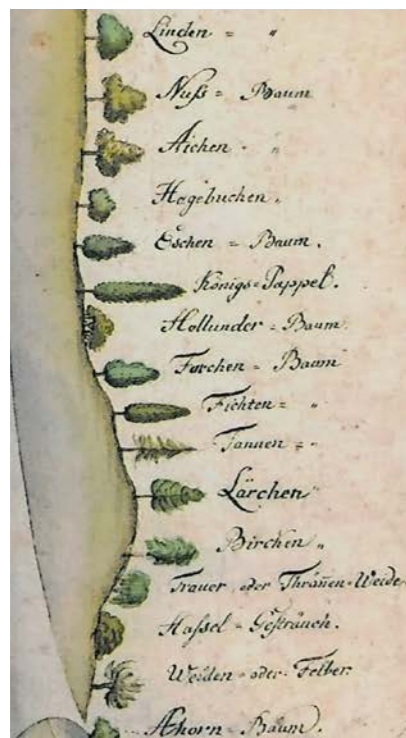 Linden = "
Nuß = Baum
Aichen - "
Hagebuchen.
Eschen = Baum.
Königs=Pappel.
Hollunder = Baum.
Forchen = Baum
Fichten = "
Tannen = "
Lärchen "
Birchen "
Trauer oder Thränen=Weide
Hassel = Gesträuch.
Weiden = oder = Felber
Æhorn = Baum.